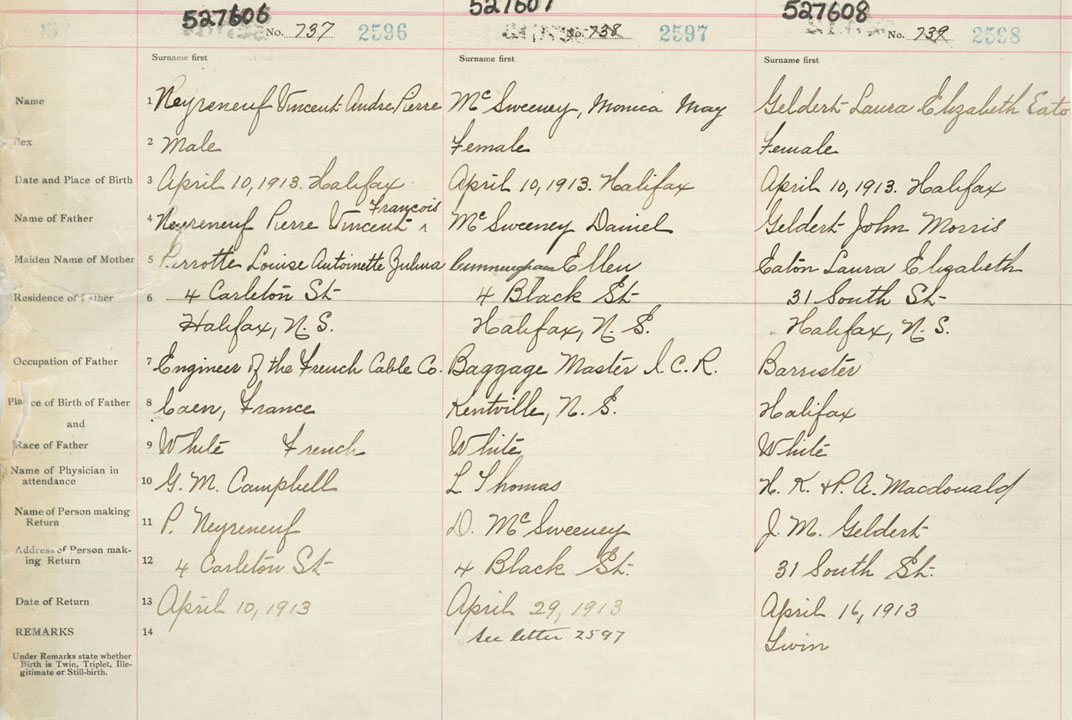 527606 527607 527608
No. 737 2596 No. 738 2597 No. 739 2598
Surname first Surname first Surname first
Name 1 Neyreneuf Vincent Andre Pierre McSweeney, Monica May Geldert Laura Elizabeth Eato
Sex 2 Male Female Female
Date and Place of Birth 3 April 10, 1913. Halifax April 10, 1913. Halifax April 10, 1913. Halifax
François
Name of Father 4 Neyreneuf Pierre Vincent ^ McSweeney Daniel Geldert John Morris
Maiden Name of Mother 5 Perrotte Louise Antoinette Zulma Cunningham Ellen Eaton Laura Elizabeth
Residence of Father 6 4 Carleton St 4 Black St 31 South St
Halifax, N.S. Halifax, N.S. Halifax, N.S.
Occupation of Father 7 Engineer of the French Cable Co. Baggage Master I.C.R. Barrister
Place of Birth of Father 8 Caen, France Kentville, N.S. Halifax
and
Race of Father 9 White French White White
Name of Physician in
attendance 10 G. M. Campbell L Thomas H. K. & P. A. Macdonald
Name of Person making
Return 11 P. Neyreneuf D. McSweeney J. M. Geldert
Address of Person mak-
ing Return 12 4 Carleton St 4 Black St. 31 South St.
Date of Return 13 April 10, 1913 April 29, 1913 April 16, 1913
REMARKS 14 See letter 2597 Twin
Under Remarks state whether
Birth is Twin, Triplet, Ille-
gitimate or Still-birth.